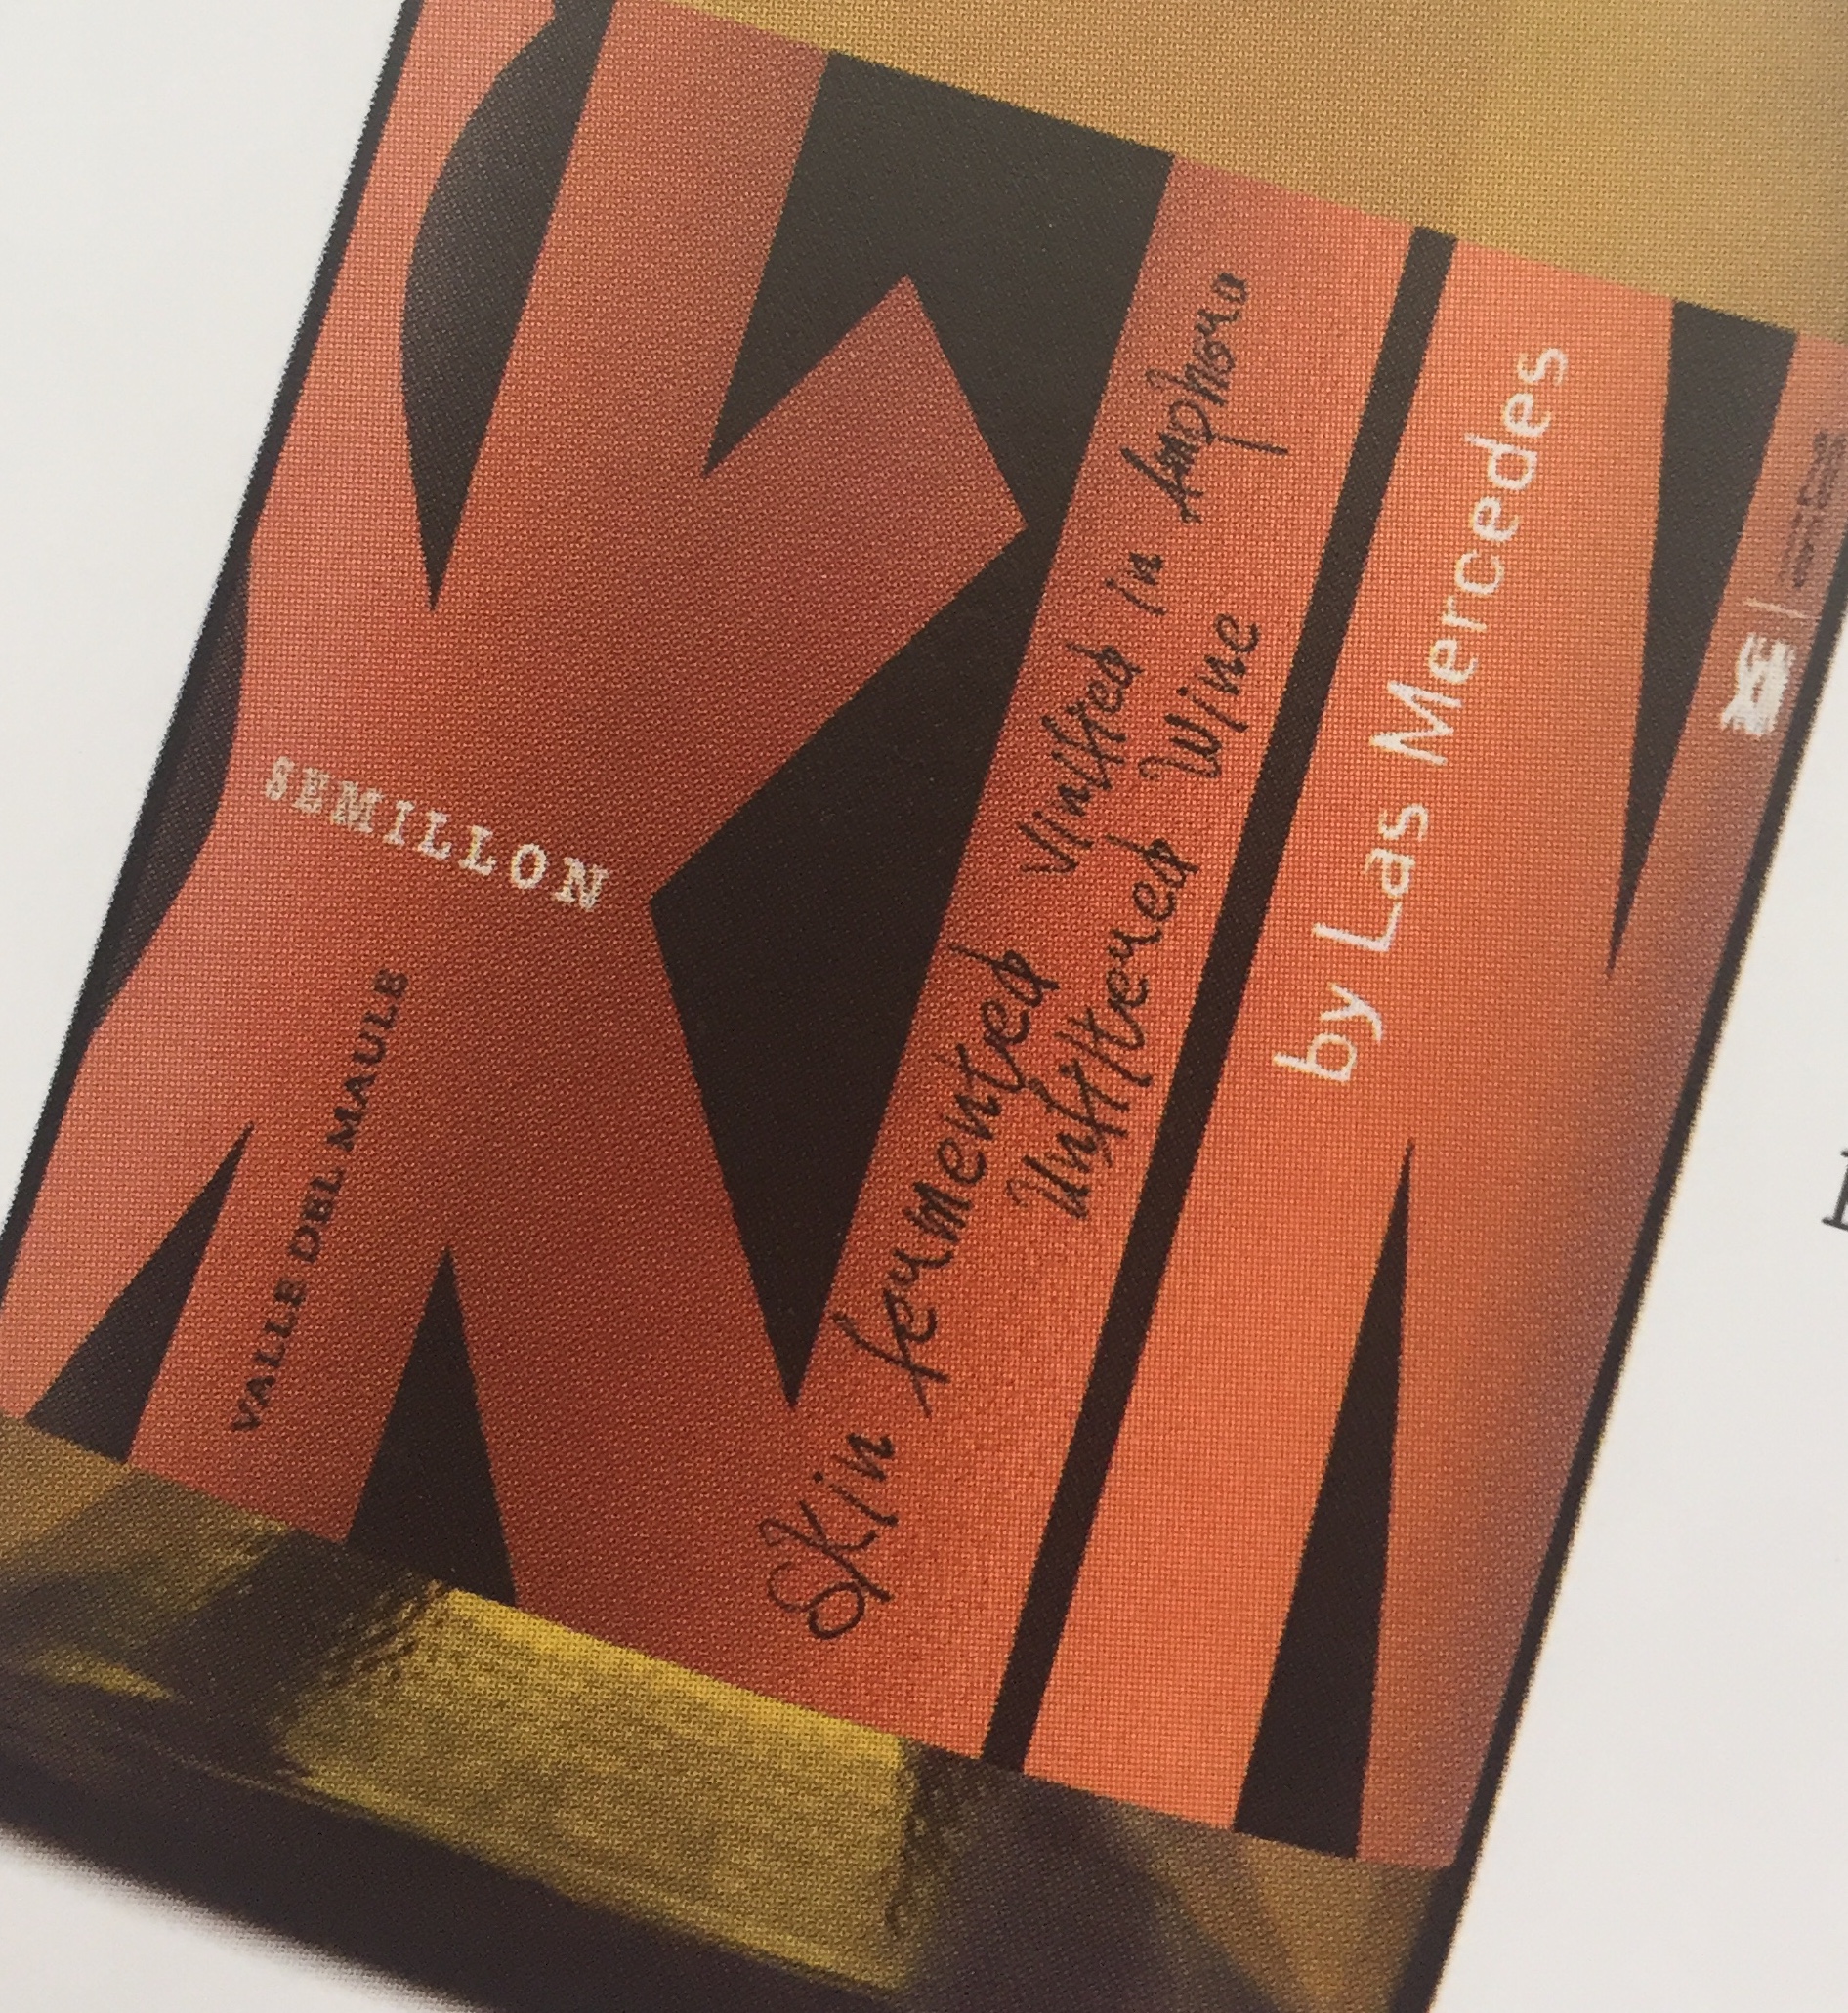 SKIN
SEMILLON
VALLE DEL MAULE
Skin fermented Vinified in Amphora
Unfiltered Wine
by Las Mercedes